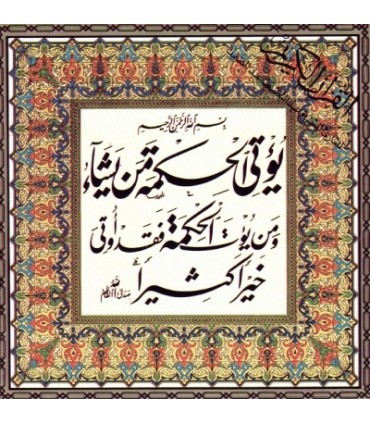 القرآن الكريم
بسم الله الرحمن الرحيم
يُؤتي الحكمة مَن يَشَآءُ
وَمَن يُؤتَ الحِكمَةَ فَقَد أُوتيَ
خَيرًا كَثيرًا
صدق الله العظيم